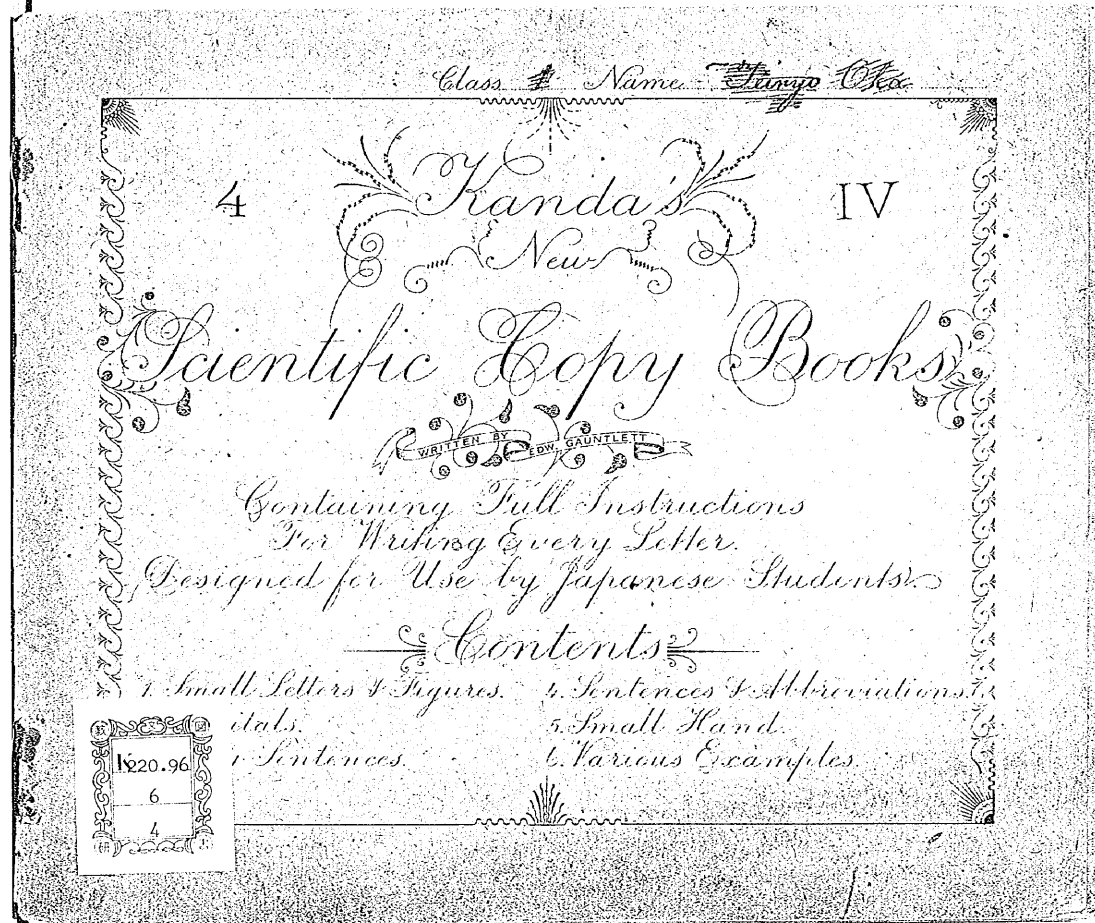 Class 1 Name
4 Kanda's IV
New
Scientific Copy Books
WRITTEN BY EDW. GAUNTLETT
Containing Full Instructions
For Writing Every Letter.
Designed for Use by Japanese Students.
Contents
1. Small Letters & Figures. 4. Sentences & Abbreviations.
itals. 5. Small Hand.
Sentences. 6. Various Examples.
K220.96
6
4